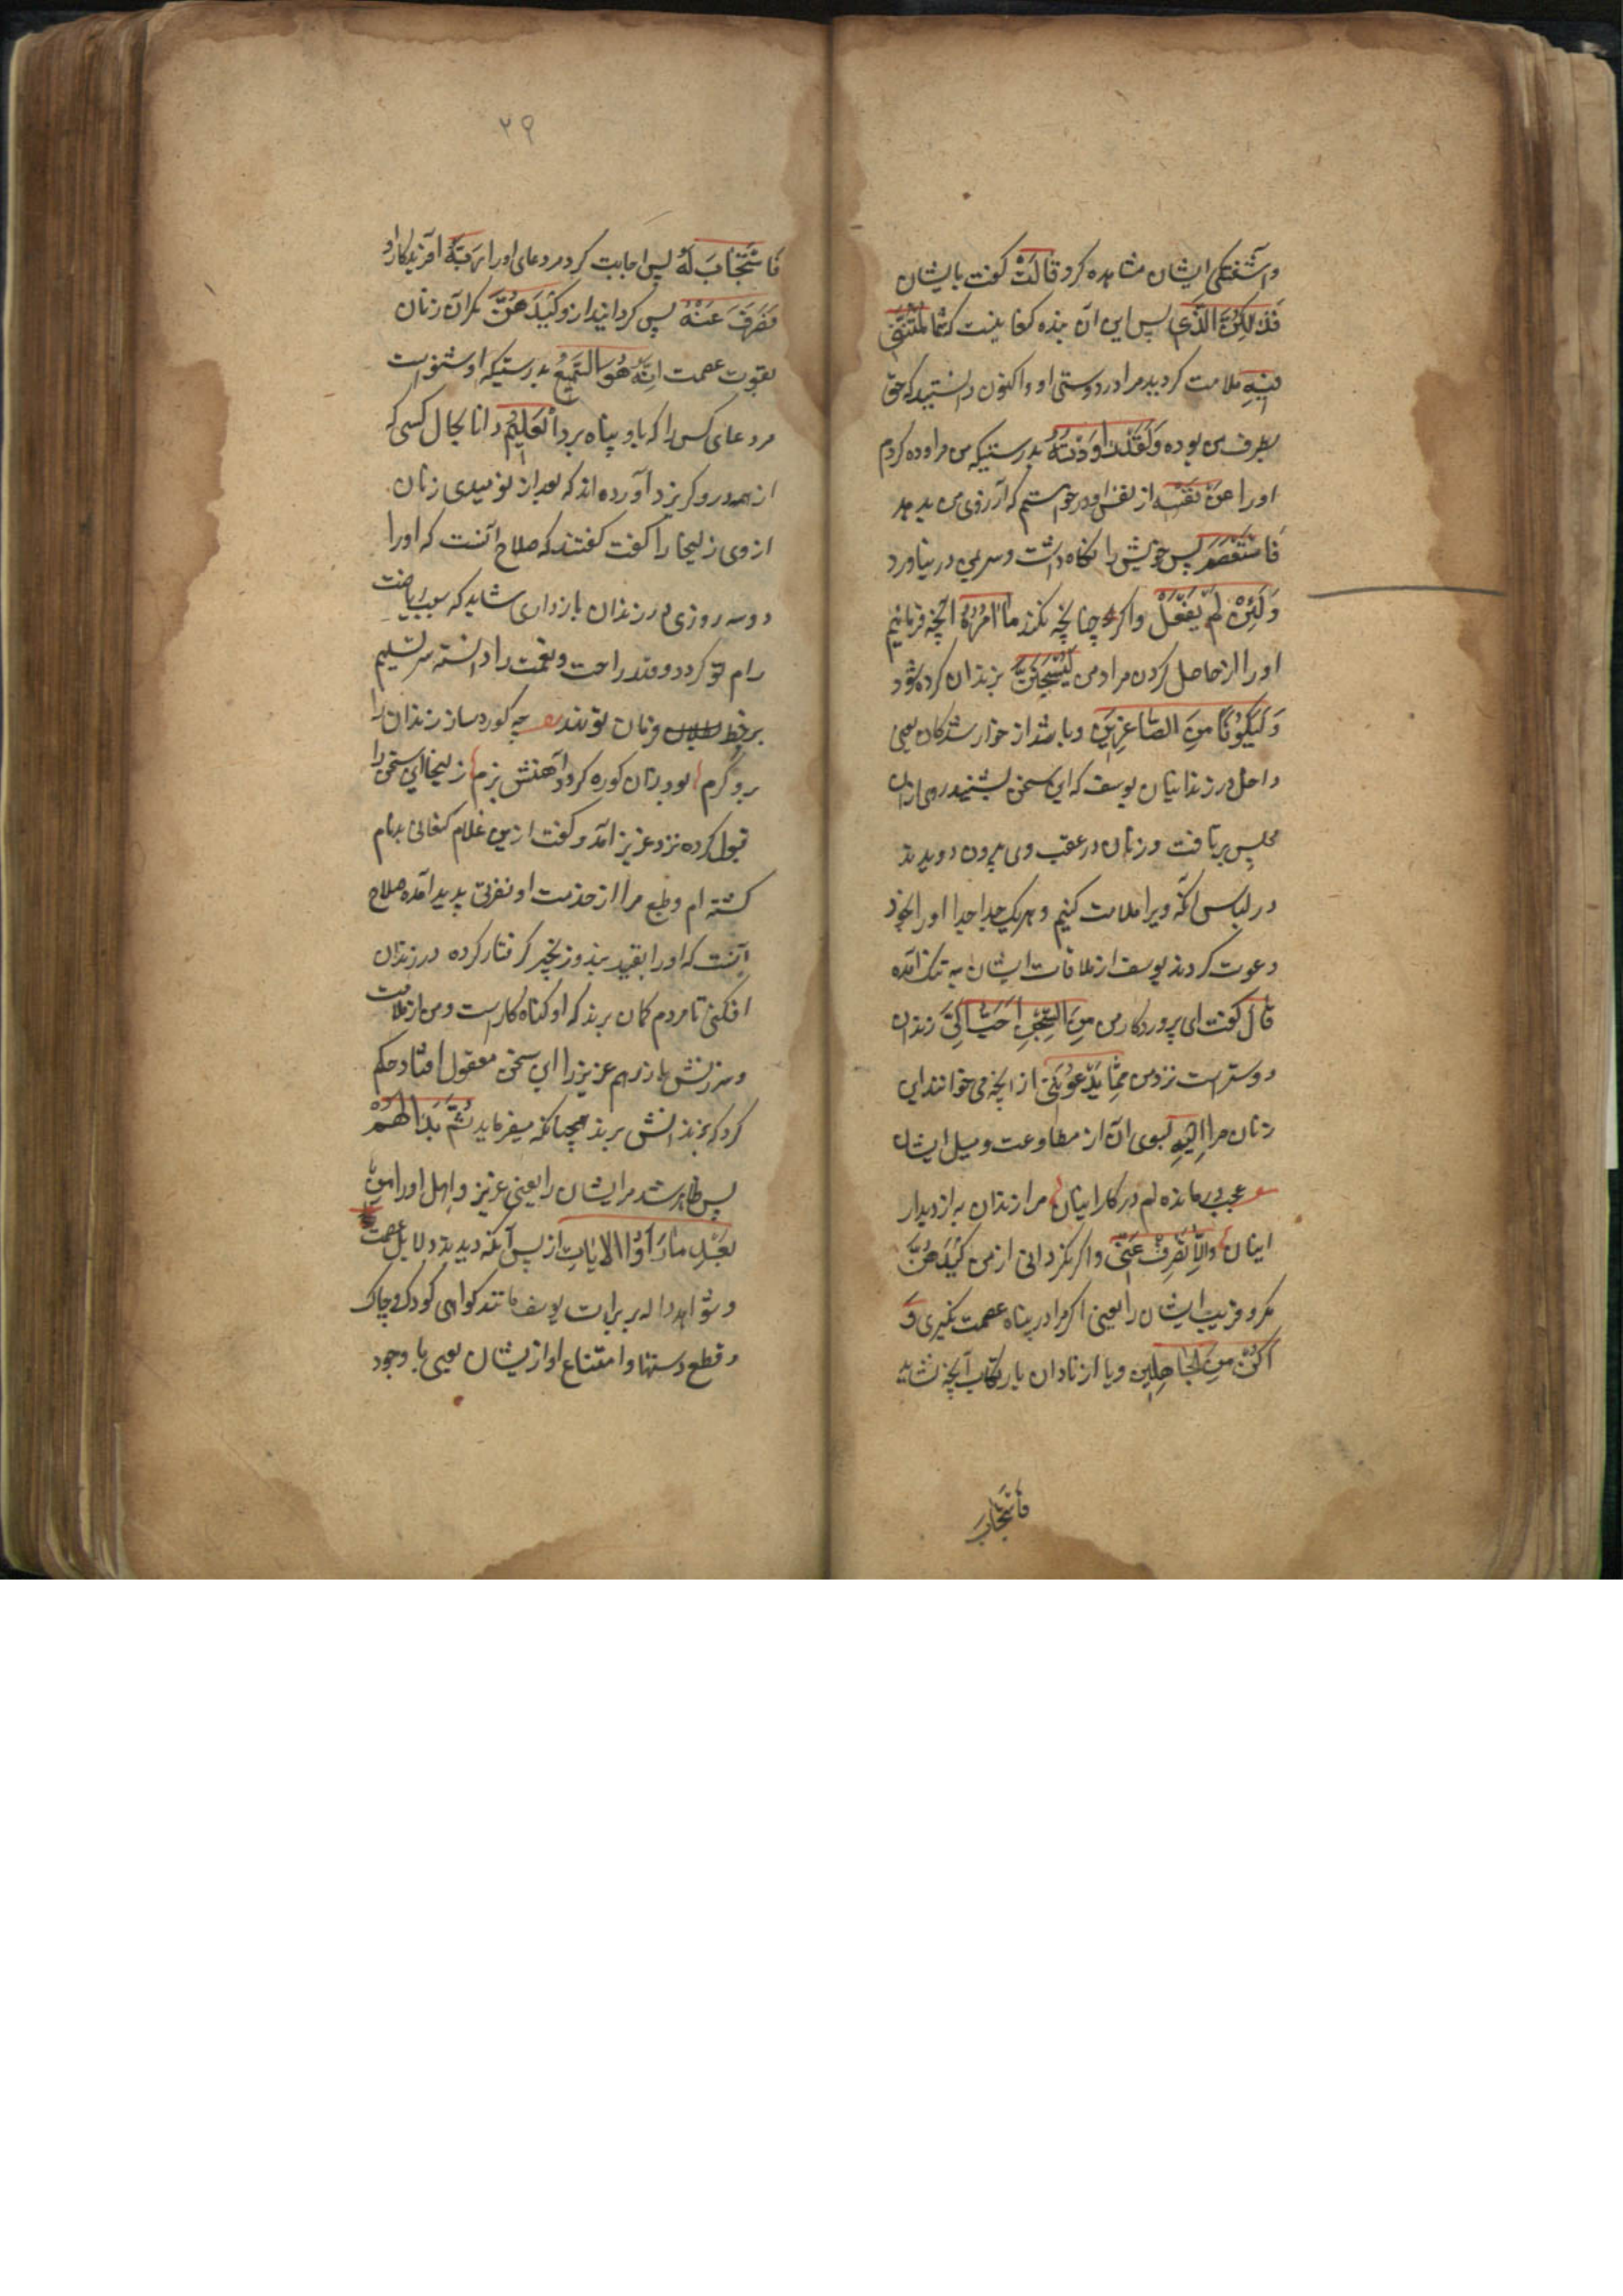 و آشفتگی ایشان مشاهده کرد قَالَتْ گفت بایشان
فَذٰلِکُنَّ الَّذِی پس این آن بنده کنعانیست که شما لُمْتُنَّنِی
فِیهِ ملامت کردید مرا در دوستی او و اکنون دانستید که حق
بطرف من بوده وَلَقَدْ رَاوَدْتُهُ بدرستیکه من مراوده کردم
او را عَنْ نَفْسِه از نفس او و درخواستم که آرزوی من بدهد
فَاسْتَعْصَمَ پس خویش را نگاه داشت و سر بمن درنیاورد
وَلَئِنْ لَمْ یَفْعَلْ و اگر چنانچه نکند مَا اٰمُرُهُ آنچه فرمایم
او را از حاصل کردن مراد من لَیُسْجَنَنَّ بزندان کرده شود
وَلَیَکُونًا مِنَ الصَّاغِرِینَ و باشد از خوارشدگان یعنی
داخل در زندانیان یوسف که این سخن بشنید روی از آن
مجلس برتافت و زنان در عقب وی بیرون دویدند
در لباس آنکه ویرا ملامت کنیم و هر یک جدا جدا او را بخود
دعوت کردند یوسف از ملاقات ایشان به تنک آمده
قَالَ گفت ای پروردکار من مِنَ السِّجْنُ اَحَبُّ اِلَیَّ زندان
دوستر است نزد من مِمَّا یَدْعُونَنِی از آنچه می خوانند این
زنان مرا اِلَیْهِ بسوی آن از مطاوعت و میل ایشان
عجب درمانده ام در کار اینان مرا زندان به از دیدار
اینان وَاِلَّا تَصْرِفْ عَنِّی و اگر نگردانی از من کَیْدَهُنَّ
مکر و فریب ایشان را یعنی اگر مرا در پناه عصمت نگیری وَ
اَکُنْ مِنَ الْجَاهِلِینَ و یا از نادان بارتکاب آنچه نشاید
فاستجاب
۲۹
فَاسْتَجَابَ لَهُ پس اجابت کرد مر دعای او را رَبُّهُ آفریدکار او
فَصَرَفَ عَنْهُ پس کردانید از و کَیْدَهُنَّ مکر آن زنان
بقوت عصمت اِنَّهُ هُوَ السَّمِیعُ بدرستیکه او شنواست
مر دعای کس را که باو پناه برد اَلْعَلِیمُ دانا بحال کسی که
از همه درو کریزد آورده اند که بعد از نومیدی زنان
از وی زلیخا را گفت گفتند که صلاح آنست که او را
دو سه روزی در زندان بازداری شاید که بسبب ریاضت
رام تو کردد و قدر راحت و نعمت را دانسته سر تسلیم
بر خط فرمان تو نهد چو کوره ساز زندان را
برو گرم بود زان کوره کردد آهنش نرم زلیخا این سخن را
قبول کرده نزد عزیز آمد و گفت ازین غلام کنعانی بدنام
کشته ام و طبع مرا از خدمت او نفرتی پدید آمده صلاح
آنست که او را بقید بند و زنجیر گرفتار کرده در زندان
افکنی تا مردم کمان برند که او کناه کار است و من از ملامت
و سرزنش باز رهم عزیز را این سخن معقول افتاد حکم
کرد که بزندانش برند چنانکه میفرماید ثُمَّ بَدَا لَهُمْ
پس ظاهر شد مر ایشان را یعنی عزیز و اهل او را مِنْ
بَعْدِ مَا رَاَوُا الْاٰیَاتِ از پس آنکه دیدند دلایل عصمت
و شواهد داله بر برات یوسف مانند کواهی کودک و چاک
و قطع دستها و امتناع او از یشان یعنی با وجود